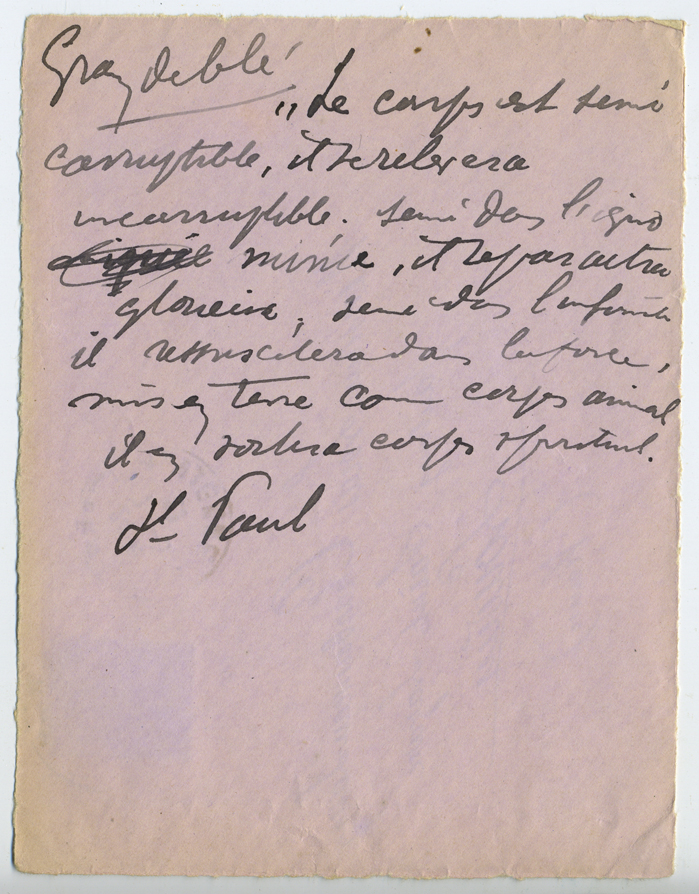 Grain de blé
"Le corps est semé
corruptible, il se relevera
incorruptible. semé dans l'igno
minie, il reparaitra
glorieux, semé dans l'infirmité
il ressuscitera dans la force,
mis en terre com corps animal
il en sortira corps spirituel.
St Paul